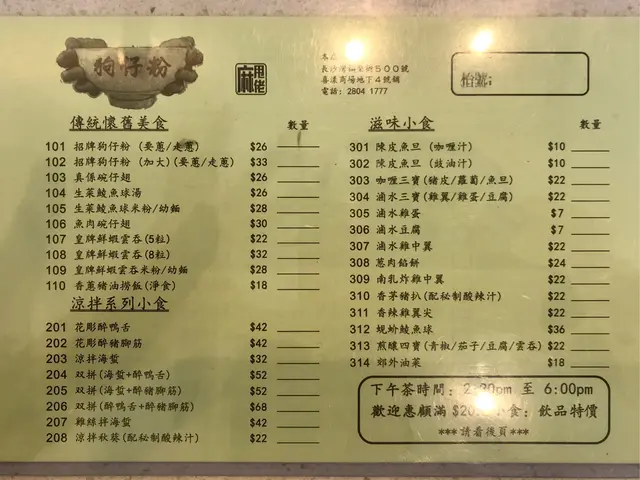 狗仔粉
麻甩佬
長沙灣
街500號
喜漾商場地下4號舖
電話: 2804 1777
枱號:
傳統懷舊美食 數量
101 招牌狗仔粉 (要蔥/走蔥) $26
102 招牌狗仔粉 (加大)(要蔥/走蔥) $33
103 真係碗仔翅 $26
104 生菜鯪魚球湯 $26
105 生菜鯪魚球米粉/幼麵 $28
106 魚肉碗仔翅 $30
107 皇牌鮮蝦雲吞(5粒) $22
108 皇牌鮮蝦雲吞(8粒) $32
109 皇牌鮮蝦雲吞米粉/幼麵 $28
110 香蔥豬油撈飯(淨食) $18
涼拌系列小食
201 花彫醉鴨舌 $42
202 花彫醉豬腳筋 $42
203 涼拌海蜇 $32
204 双拼(海蜇+醉鴨舌) $52
205 双拼(海蜇+醉豬腳筋) $52
206 双拼(醉鴨舌+醉豬腳筋) $68
207 雞絲拌海蜇 $42
208 涼拌秋葵(配秘制酸辣汁) $22
滋味小食 數量
301 陳皮魚旦 (咖喱汁) $10
302 陳皮魚旦 (豉油汁) $10
303 咖喱三寶(豬皮/蘿蔔/魚旦) $22
304 滷水三寶(雞翼/雞蛋/豆腐) $22
305 滷水雞蛋 $7
306 滷水豆腐 $7
307 滷水雞中翼 $22
308 蔥肉餡餅 $24
309 南乳炸雞中翼 $22
310 香茅豬扒(配秘制酸辣汁) $22
311 香辣雞翼尖 $22
312 蜆蚧鯪魚球 $36
313 煎釀四寶(青椒/茄子/豆腐/雲吞) $22
314 郊外油菜 $18
下午茶時間: 2:30pm 至 6:00pm
歡迎惠顧滿 $20 小食; 飲品特價
***請看後頁***